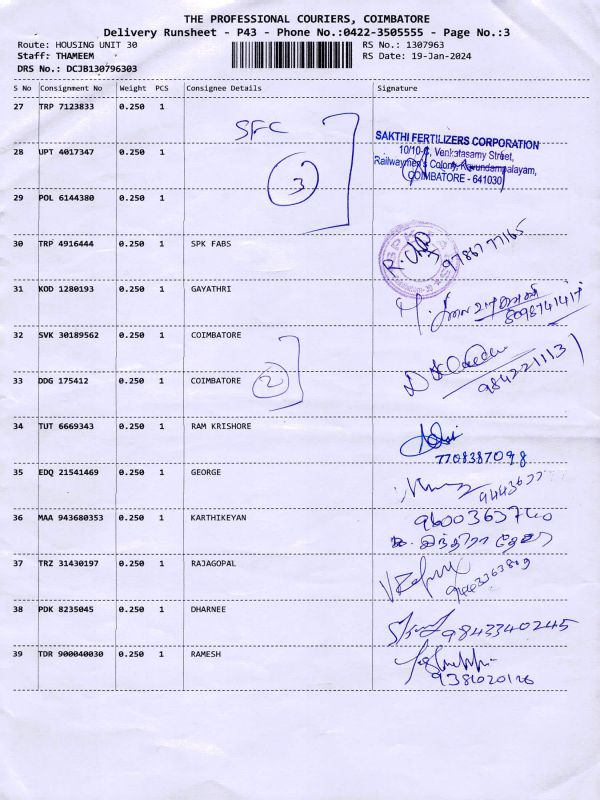 THE PROFESSIONAL COURIERS, COIMBATORE
Delivery Runsheet - P43 - Phone No.:0422-3505555 - Page No.:3
Route: HOUSING UNIT 30 RS No.: 1307963
Staff: THAMEEM RS Date: 19-Jan-2024
DRS No.: DCJB130796303
S No Consignment No Weight PCS Consignee Details Signature
27 TRP 7123833 0.250 1
SFC
SAKTHI FERTILIZERS CORPORATION
28 UPT 4017347 0.250 1
10/10-C, Venkatasamy Street,
Railwaymen's Colony, Kavundampalayam,
COIMBATORE - 641030
3
29 POL 6144380 0.250 1
30 TRP 4916444 0.250 1 SPK FABS
9786777165
31 KOD 1280193 0.250 1 GAYATHRI
8098741417
32 SVK 30189562 0.250 1 COIMBATORE
33 DDG 175412 0.250 1 COIMBATORE
2
984221113
34 TUT 6669343 0.250 1 RAM KRISHORE
7708387098
35 EDQ 21541469 0.250 1 GEORGE
36 MAA 943680353 0.250 1 KARTHIKEYAN
9600363740
37 TRZ 31430197 0.250 1 RAJAGOPAL
9443363809
38 PDK 8235045 0.250 1 DHARNEE
9843340245
39 TDR 900040030 0.250 1 RAMESH
9381020126